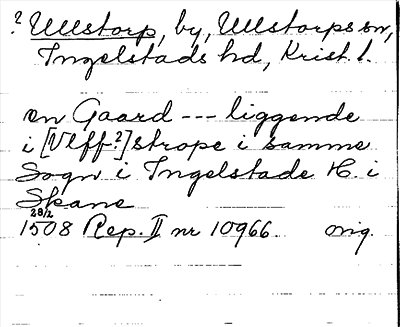 ? Ullstorp, by, Ullstorps sn,
Ingelstads hd, Krist. l.
en Gaard --- liggende
i [Vlff?] strope i samme
Sogn i Ingelstade H. i
Skane
28/2
1508 Rep. II nr 10966. orig.